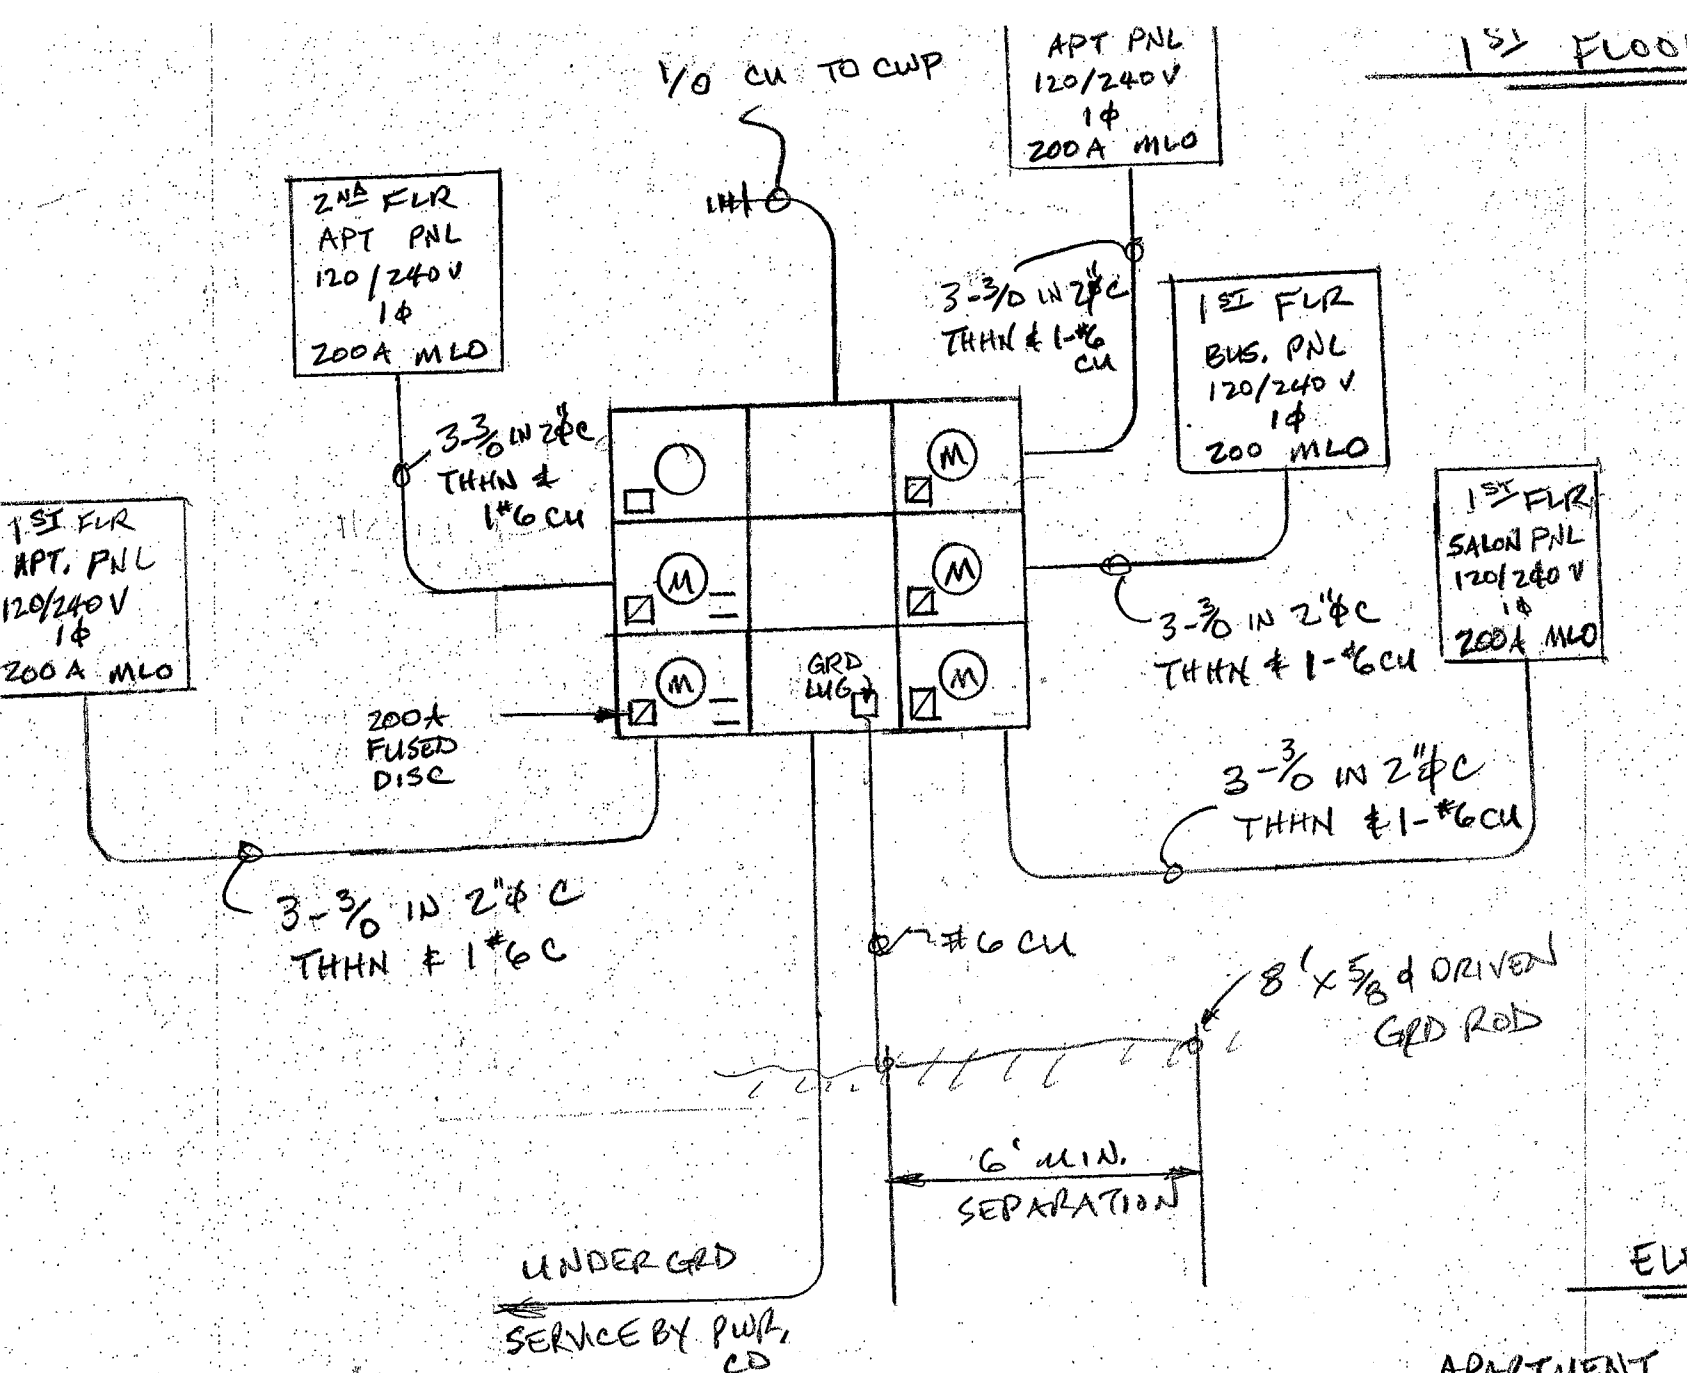 1/0 CU TO CWP
APT PNL
120/240V
1ϕ
200A MLO
1ST FLOO
2ND FLR
APT PNL
120/240V
1ϕ
200A MLO
3-3/0 IN 2"ϕC
THHN & 1-#6
CU
1ST FLR
BUS. PNL
120/240V
1ϕ
200 MLO
3-3/0 IN 2"ϕC
THHN &
1#6 CU
M
M
M
M
M
1ST FLR
APT. PNL
120/240V
1ϕ
200A MLO
1ST FLR
SALON PNL
120/240V
1ϕ
200A MLO
3-3/0 IN 2"ϕC
THHN & 1-#6 CU
GRD
LUG
200A
FUSED
DISC
3-3/0 IN 2"ϕC
THHN & 1-#6 CU
3-3/0 IN 2"ϕ C
THHN & 1#6 C
#6 CU
8' X 5/8 ϕ DRIVEN
GRD ROD
6' MIN.
SEPARATION
UNDERGRD
SERVICE BY PWR.
CO
APARTMENT